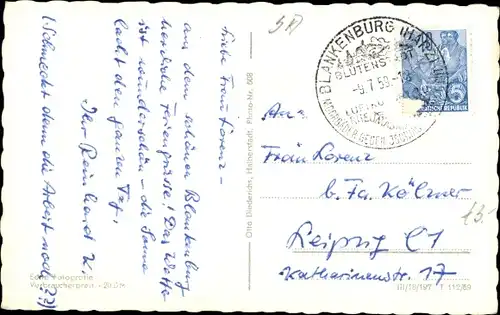 Liebe Frau Lorenz –
aus dem schönen Blankenburg
herzliche Feriengrüsse! Das Wetter
ist wunderschön – die Sonne
lacht den ganzen Tag.
Ihr Reinhard K.
(Schmeckt denn die Arbeit noch??)
Echte Fotografie
Verbraucherpreis - 20 DM
Otto Diederichs, Halberstadt, Photo-Nr. 608
BLANKENBURG (HARZ)
BLÜTENST
- 9.7.59.-1
DEUTSCHE DEMOKRATISCHE REPUBLIK
5
An
Frau Lorenz
b. Fa. Kölner
Leipzig C1
Katharinenstr. 17
III/18/197 T 112/59